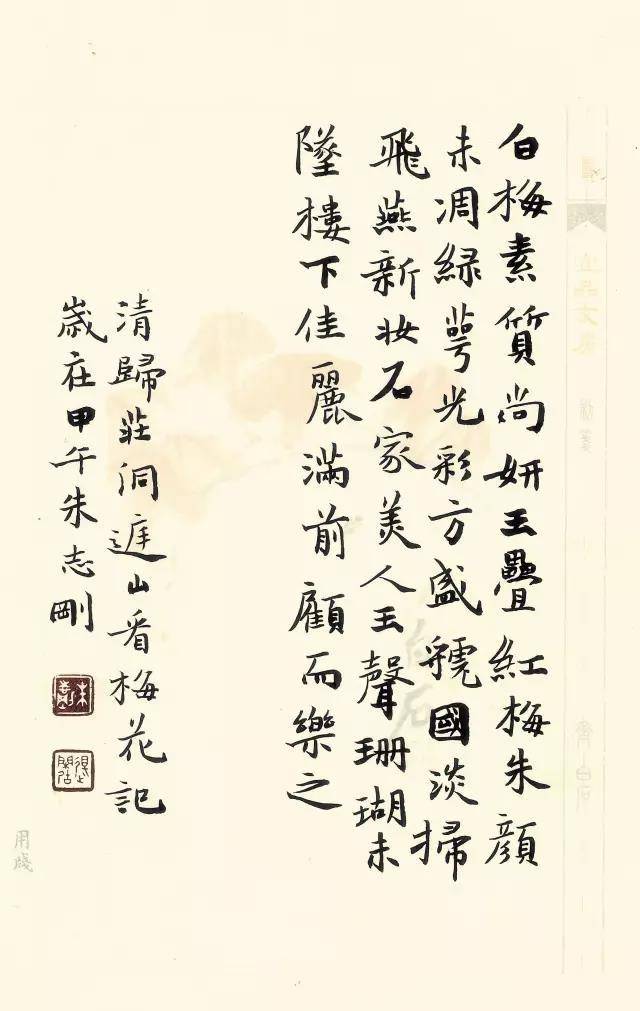 白梅素質尚妍玉疊紅梅朱顔
未凋緑萼光彩方盛虢國淡掃
飛燕新妝石家美人玉聲珊瑚未
墜樓下佳麗滿前顧而樂之
清歸莊洞庭山看梅花記
歲在甲午朱志剛
齊白石
白石
用牋